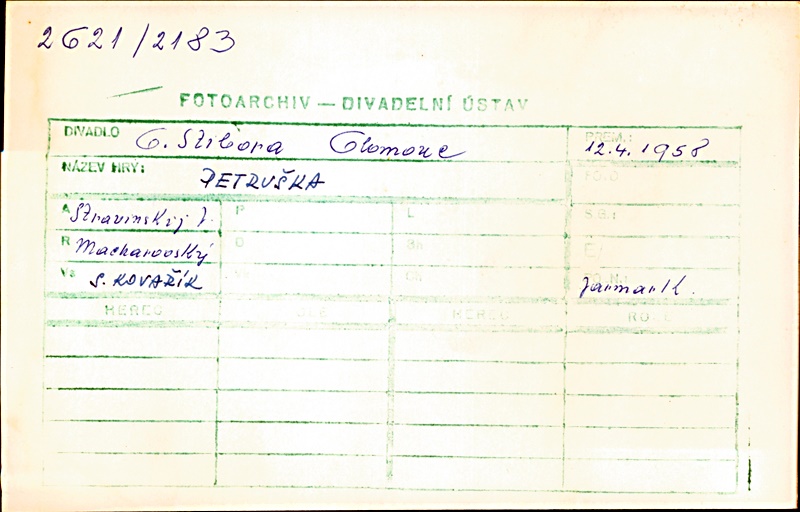 2621/2183
FOTOARCHIV — DIVADELNÍ ÚSTAV
DIVADLO O. Stibora Olomouc PREM.: 12.4.1958
NÁZEV HRY: PETRUŠKA FOTO
A Stravinskij I. P L S.G.:
R Macharovský D Bh E/
Vs S. KOVAŘÍK Ch jarmark.
HEREC ROLE HEREC ROLE